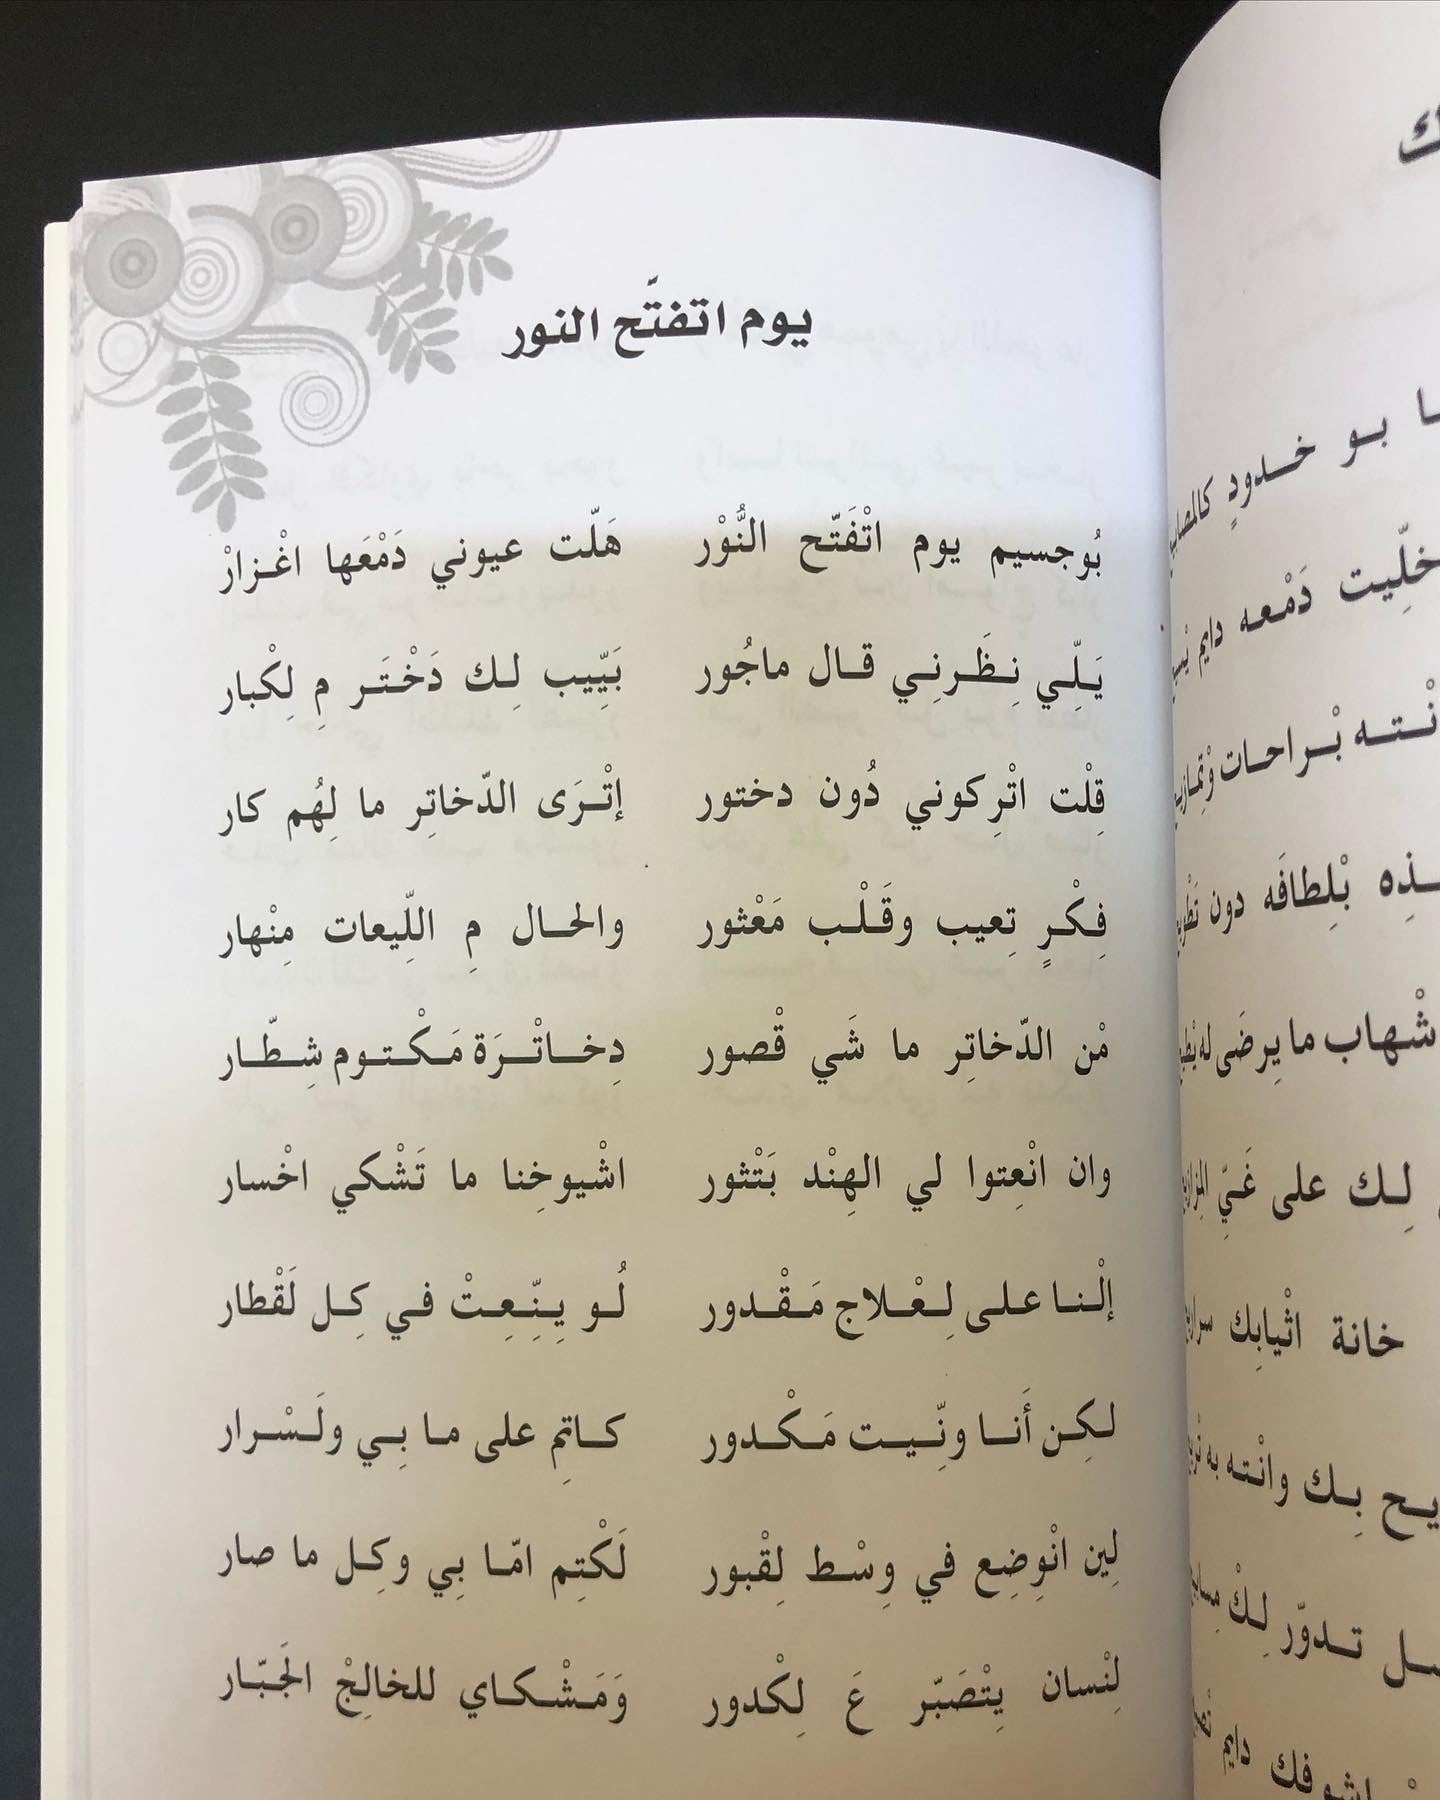 يوم اتفتّح النور
بُوجسيم يوم اتْفَتّح النُّوْر هَلّت عيوني دَمْعَها اغْزارْ
يَلّي نِظَرنِي قال ماجُور بَيّيب لِك دَخْتَر مِ لِكْبار
قِلْت اتْرِكوني دُون دختور إتْرَى الدّخاتِر ما لِهُم كار
فِكْرٍ تِعيب وقَلْب مَعْثور والحال مِ اللّيعات مِنْهار
مْن الدّخاتِر ما شَي قْصور دِخاتْرَة مَكْتوم شِطّار
وان انْعِتوا لي الهِنْد بَتْثور اشْيوخِنا ما تَشْكي اخْسار
إلْنا على لِعْلاج مَقْدور لُو يِنّعِتْ في كِل لَقْطار
لكِن أَنا ونّيت مَكْدور كاتِم على ما بِي ولَسْرار
لِين انْوِضِع في وِسْط لِقْبور لَكْتِم امّا بِي وكِل ما صار
لِنْسان يِتْصَبّر عَ لِكْدور وَمَشْكاي للخالِجْ الجَبّار
ـا بو خدودٍ
خلّيت دَمْعه دايم
بْراحات
بْلِطافَه دون
شْهاب ما يِرضَى له
لِك على غَيّ
خانة اثْيابِك
بِك وانْته به
تدوّر لِكْ
اشوفك دايم